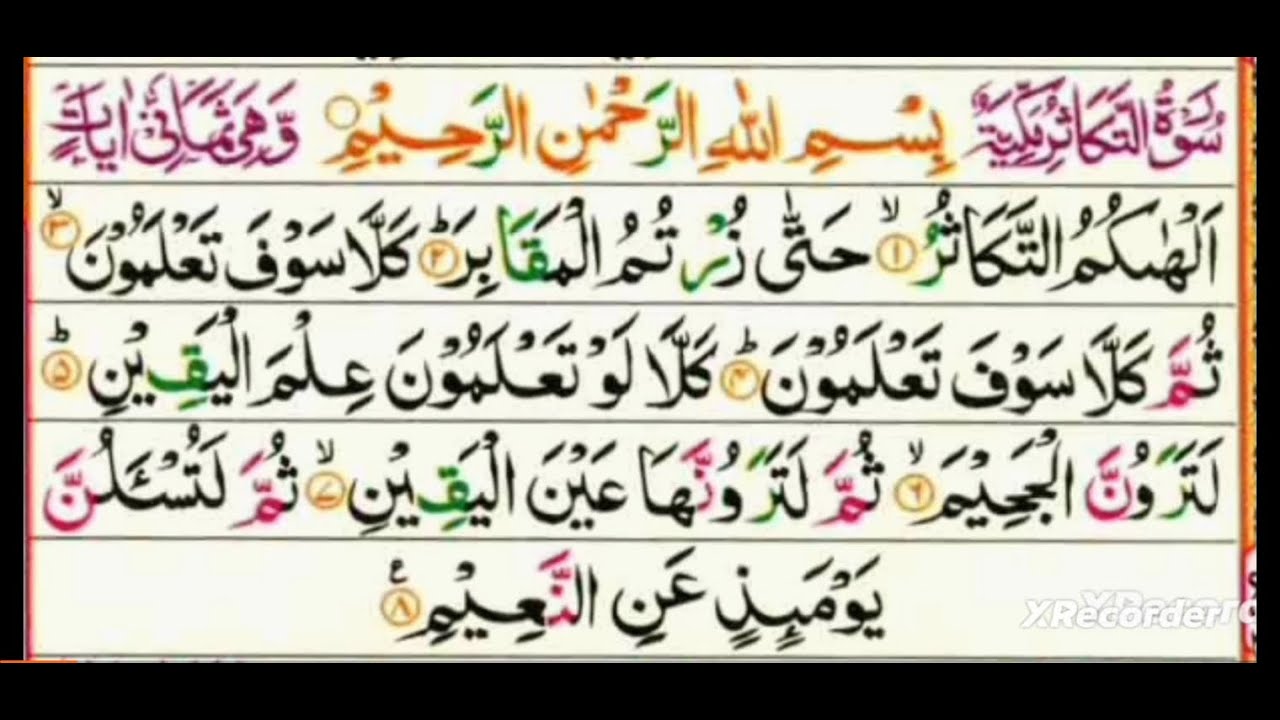 سُوْرَةُ التَّكَاثُرِ مَكِّيَّةٌ بِسْمِ اللّٰهِ الرَّحْمٰنِ الرَّحِيْمِ وَّهِىَ ثَمَانِىْ اٰيَاتٍ
اَلْهٰىكُمُ التَّكَاثُرُ ۙ﴿۱﴾ حَتّٰى زُرْتُمُ الْمَقَابِرَ ؕ﴿۲﴾ كَلَّا سَوْفَ تَعْلَمُوْنَ ۙ﴿۳﴾
ثُمَّ كَلَّا سَوْفَ تَعْلَمُوْنَ ؕ﴿۴﴾ كَلَّا لَوْ تَعْلَمُوْنَ عِلْمَ الْيَقِيْنِ ؕ﴿۵﴾
لَتَرَوُنَّ الْجَحِيْمَ ۙ﴿۶﴾ ثُمَّ لَتَرَوُنَّهَا عَيْنَ الْيَقِيْنِ ۙ﴿۷﴾ ثُمَّ لَتُسْـَٔلُنَّ
يَوْمَىِٕذٍ عَنِ النَّعِيْمِ ﴿۸﴾ ع
XRecorder